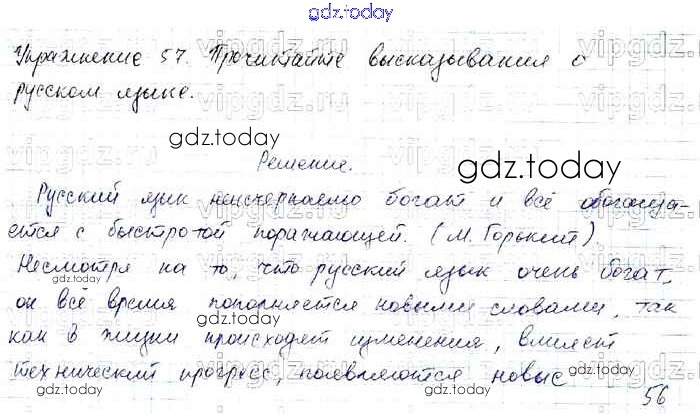 gdz.today
Упражнение 57. Прочитайте высказывания о
русском языке.
gdz.today
gdz.today
Решение.
Русский язык неисчерпаемо богат и всё обогаща-
ется с быстротой поражающей. (М. Горький)
gdz.today
gdz.today
Несмотря на то, что русский язык очень богат,
он всё время пополняется новыми словами, так
gdz.today
gdz.today
как в жизни происходят изменения, влияет
технический прогресс, появляются новые
gdz.today
gdz.today
56